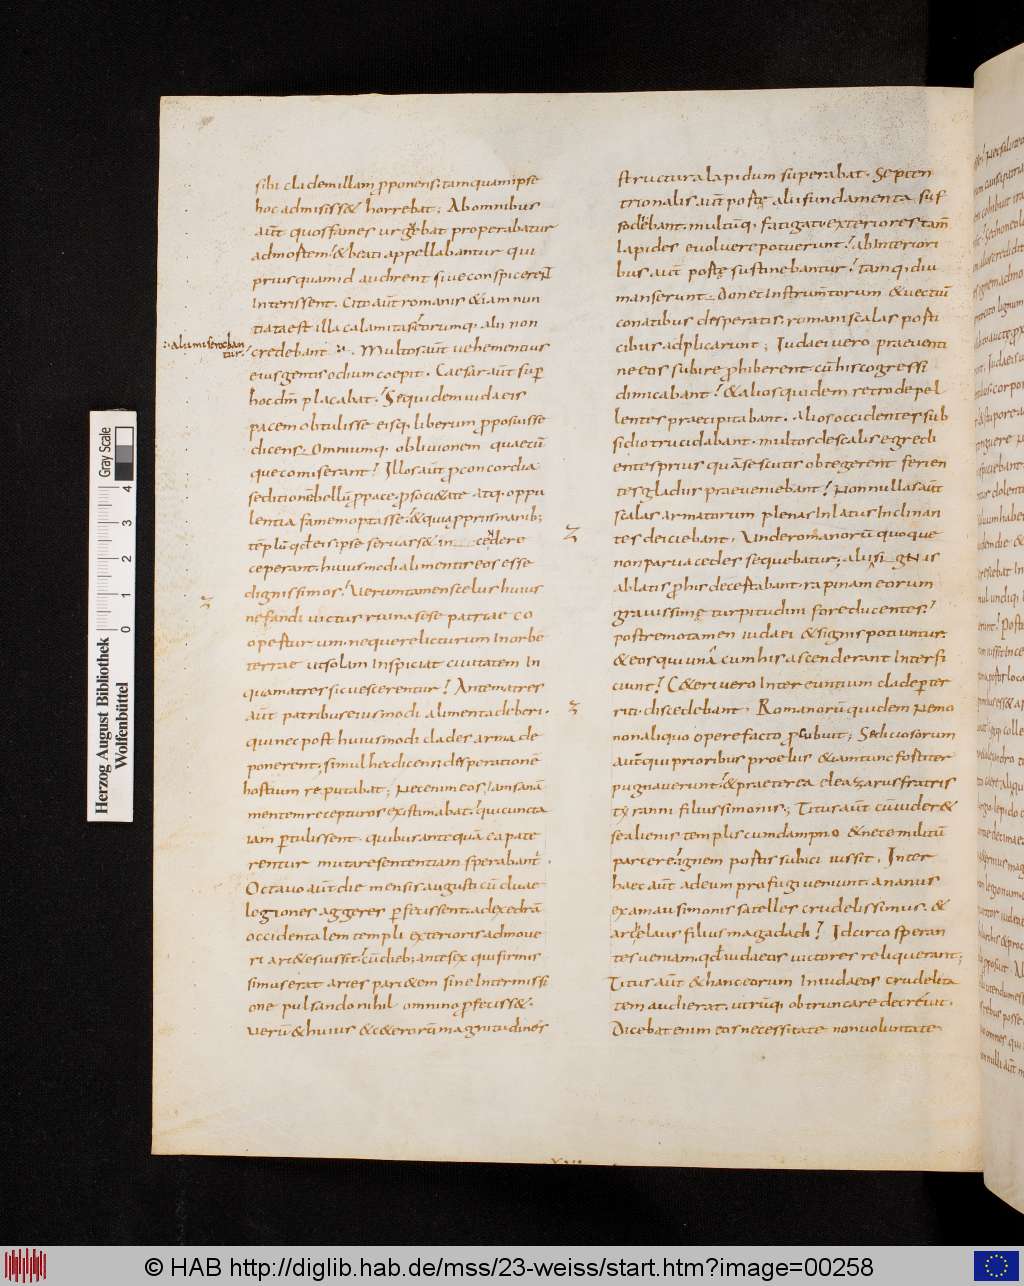 sibi clademillam ꝓponens; tamquamipse
hoc admisiss& horrebat; Abomnibus
aut̄ quosfames urgebat properabatur
admoſtem; & beati appellabantur qui
priusquamid audirent siueconspicerent
Interissent. Cito aut̄ romanis &iam nun
tiataest illa calamitas; eorumq; alii non
:· alii miserebantur·
credebant :· . Multos aut̄ uehementius
eiusgentis odium coepit. Caesar aut̄ suꝑ
hoc dm̄ placabat. Sequidem iudaeis
pacem obtulisse eisq; liberum ꝓposuisse
dicens. Omniumq; obliuionem quaecū
quecomiserant; Illos aut̄ ꝓconcordia
seditionē bellū ꝓpace. ꝓsoci&ate atq; opu
lentia famemoptasse; & quia ꝓpriis manib;
tēplū qd̄ eis ipse seruass& in cendere
ceperant. huiusmodi alimentis eos esse
dignissimos. Uerumtamen scelus huius
nefandi uictus ruina sese patriae co
operturum. nequerelicturum Inorbe
terrae ut solum Inspiciat ciuitatem In
quamatres sic uescerentur; Ante matres
aut̄ patribus eiusmodi alimenta deberi.
qui nec post huiusmodi clades arma de
ponerent; simul hęc dicens; desperationē
hostium reputabat; Necenim eos, ad sanā
mentem recepturos existimabat; qui cuncta
iam ꝑtulissent. quibus antequā ea pate
rentur mutaresententiam sperabant.
Octauo aut̄ die mensis augusti cū duae
legiones aggeres ꝑfecissent. ad exedrā
occidentalem templi exterioris admoue
ri ari&es iussit; cū dieb; ante sex qui firmis
simus erat aries pari&em sine Intermissi
one pulsando nihil omnino ꝓfeciss&.
uerū & huius & c&erorū magnitudines
structura lapidum superabat. Septen
trionalis aut̄ portę alii fundamenta suf
fodiebant. multūq; fatigati exteriores tam̄
lapides euoluere potuerunt; ab Interiori
bus aut̄ portę sustinebantur; tamq; diu
manserunt. Donec Instrumtorum &uectiū
conatibus desperatis. romani scalas porti
cibus adplicarunt; Iudaei uero praeuenti
ne eos subire ꝓhiberent. cū his cogressi
dimicabant; & alios quidem retro depel
lentes praecipitabant. alios occidentes sub
sidio trucidabant. multos descalis egredi
entes prius quā se scutis obtegerent ferien
tes gladiis praeueniebant; Nonnullas aut̄
scalas armatorum plenas In latus Inclinan
tes deiciebant. Unde romanorū quoque
non parua caedes sequebatur; alii signis
ablatis ꝓ his decertabant. rapinam eorum
grauissimę turpitudini fore ducentes;
postremo tamen iudaei & signis potiuntur.
& eos qui unā cum his ascenderant Interfi
ciunt; C&eri uero Intereuntium clade ꝑter
riti. discedebant. Romanorū quidem Nemo
non aliquo opere facto ꝓcubuit; Seditiosorum
aut̄ qui prioribus proeliis & iamtunc fortiter
pugnauerunt; & praeterea eleazarus fratris
tyranni filius simonis; Titus aut̄ cū uider&
se alienis templis cum dampno & nece militū
parcere; ignem portis subici iussit. Inter
haec aut̄ adeum profugi ueniunt. ananus
exam̄ausimonis satelles crudelissimus. &
archelaus filius magadadi; Idcirco speran
tes ueniam. qd̄ iudaeos uictores reliquerant;
Titus aut̄ & hanc eorum In iudaeos crudelita
tem audierat. utrūq; obtruncare decreuit.
Dicebat enim eos necessitate non uoluntate
Gray Scale
0 1 2 3 4
Herzog August Bibliothek
Wolfenbüttel
© HAB http://diglib.hab.de/mss/23-weiss/start.htm?image=00258